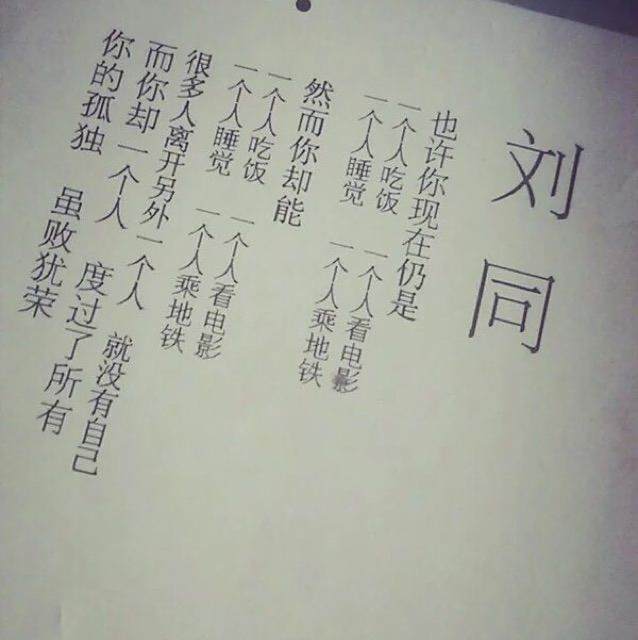 刘同
也许你现在仍是
一个人吃饭 一个人看电影
一个人睡觉 一个人乘地铁
然而你却能
一个人吃饭 一个人看电影
一个人睡觉 一个人乘地铁
很多人离开另外一个人 就没有自己
而你却一个人 度过了所有
你的孤独 虽败犹荣